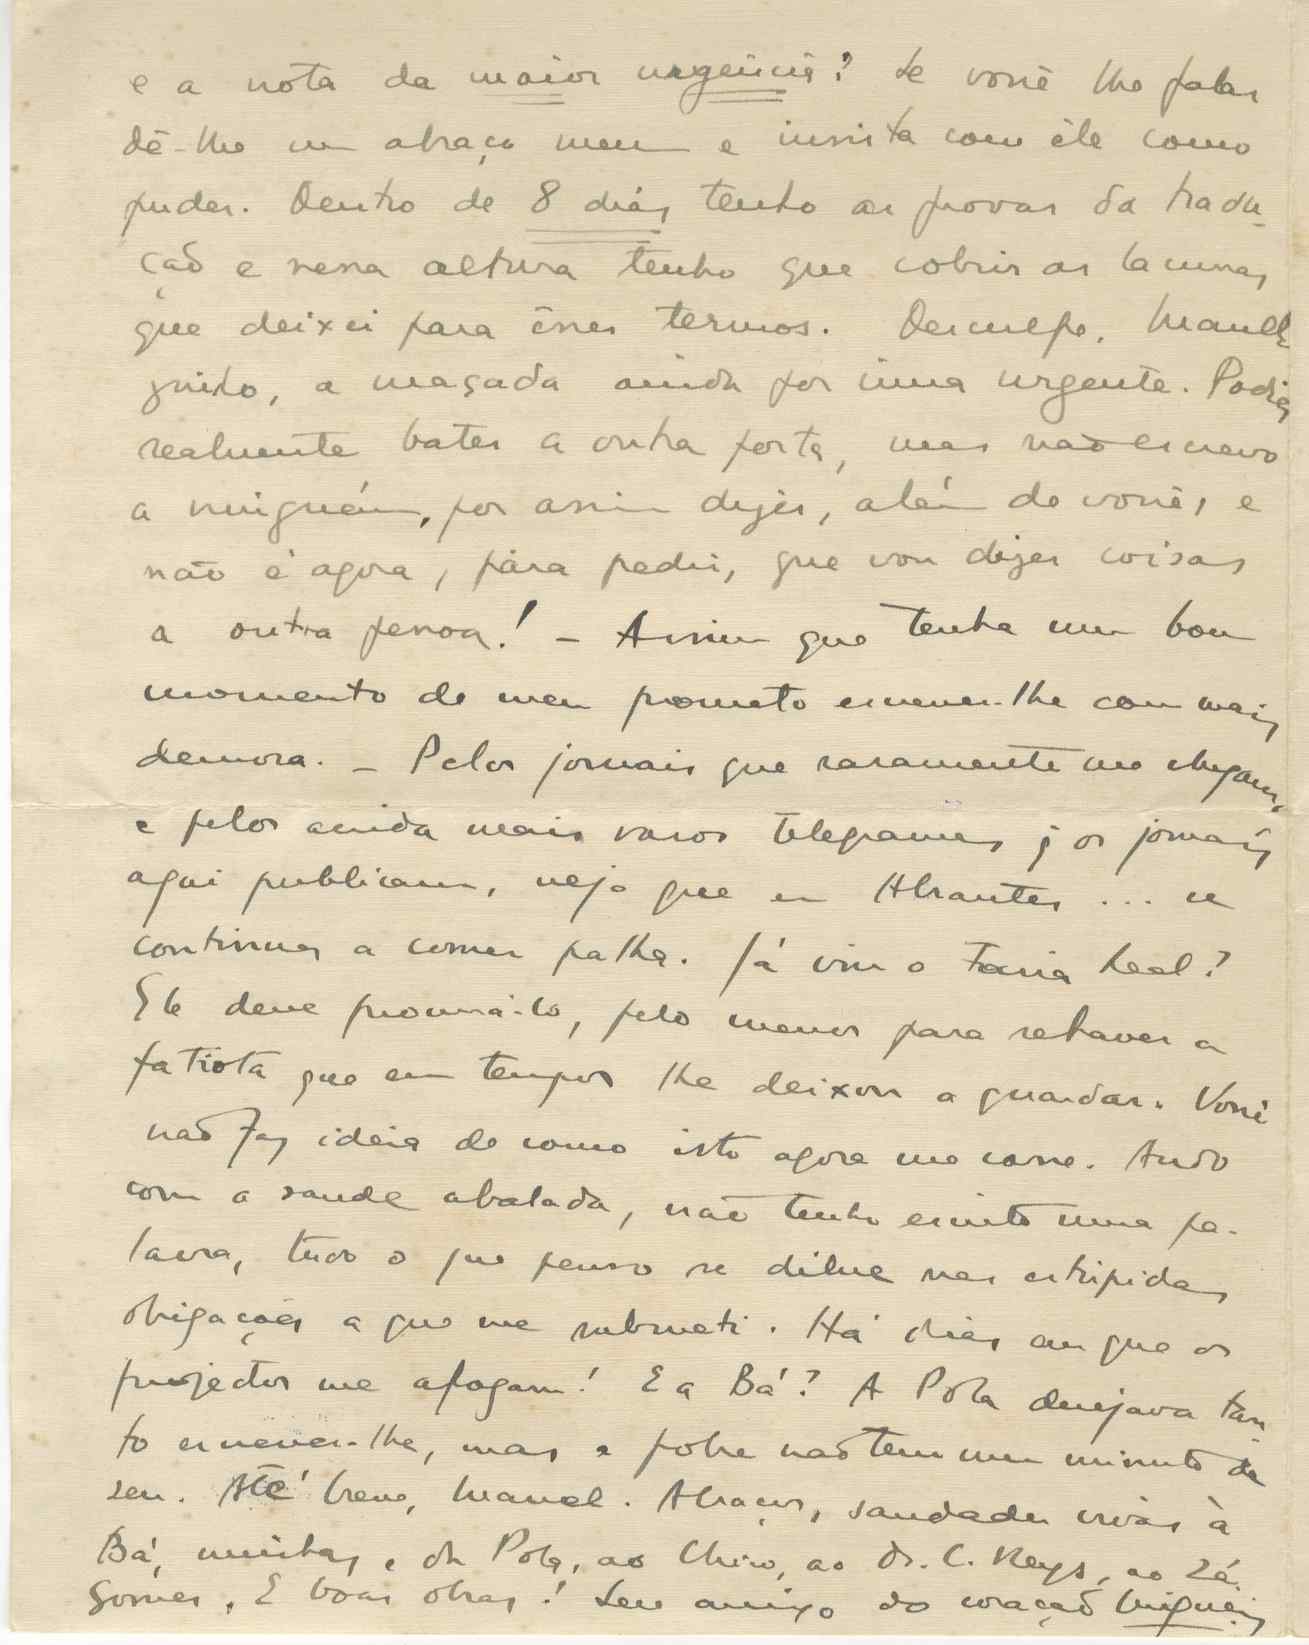 e a nota da maior urgência? Se você lhe falar
dê-lhe um abraço meu e insista com êle como
puder. Dentro de 8 dias tenho as provas da tradu-
ção e nessa altura tenho que cobrir as lacunas
que deixei para êsses termos. Desculpe, Manel-
zinho, a maçada ainda por cima urgente. Podia
realmente bater a outra porta, mas não escrevo
a ninguém, por assim dizer, além de vocês, e
não é agora, pára pedir, que vou dizer coisas
a outra pessoa! – Assim que tenha um bom
momento de meu prometo escrever-lhe com mais
demora. – Pelos jornais que raramente me chegam,
e pelos ainda mais raros telegramas q̃ os jornais
aqui publicam, vejo que em Abrantes ... se
continua a comer palha. Já viu o Faria Leal?
Ele deve procurá-lo, pelo menos para rehaver a
fatiota que em tempos lhe deixou a guardar. Você
não faz ideia de como isto agora me corre. Ando
com a saude abalada, não tenho escrito uma pa-
lavra, tudo o que penso se dilue nas estupidas
obrigações a que me submeti. Há dias em que os
projectos me afogam! E a Bá? A Pola desejava tan-
to escrever-lhe, mas a pobre não tem um minuto de
seu. Até breve, Manel. Abraços, saudades vivas à
Bá, minhas e da Pola, ao Chico, ao Dr. C. Reys, ao Zé
Gomes. E boas obras! Seu amigo do coração Migueis